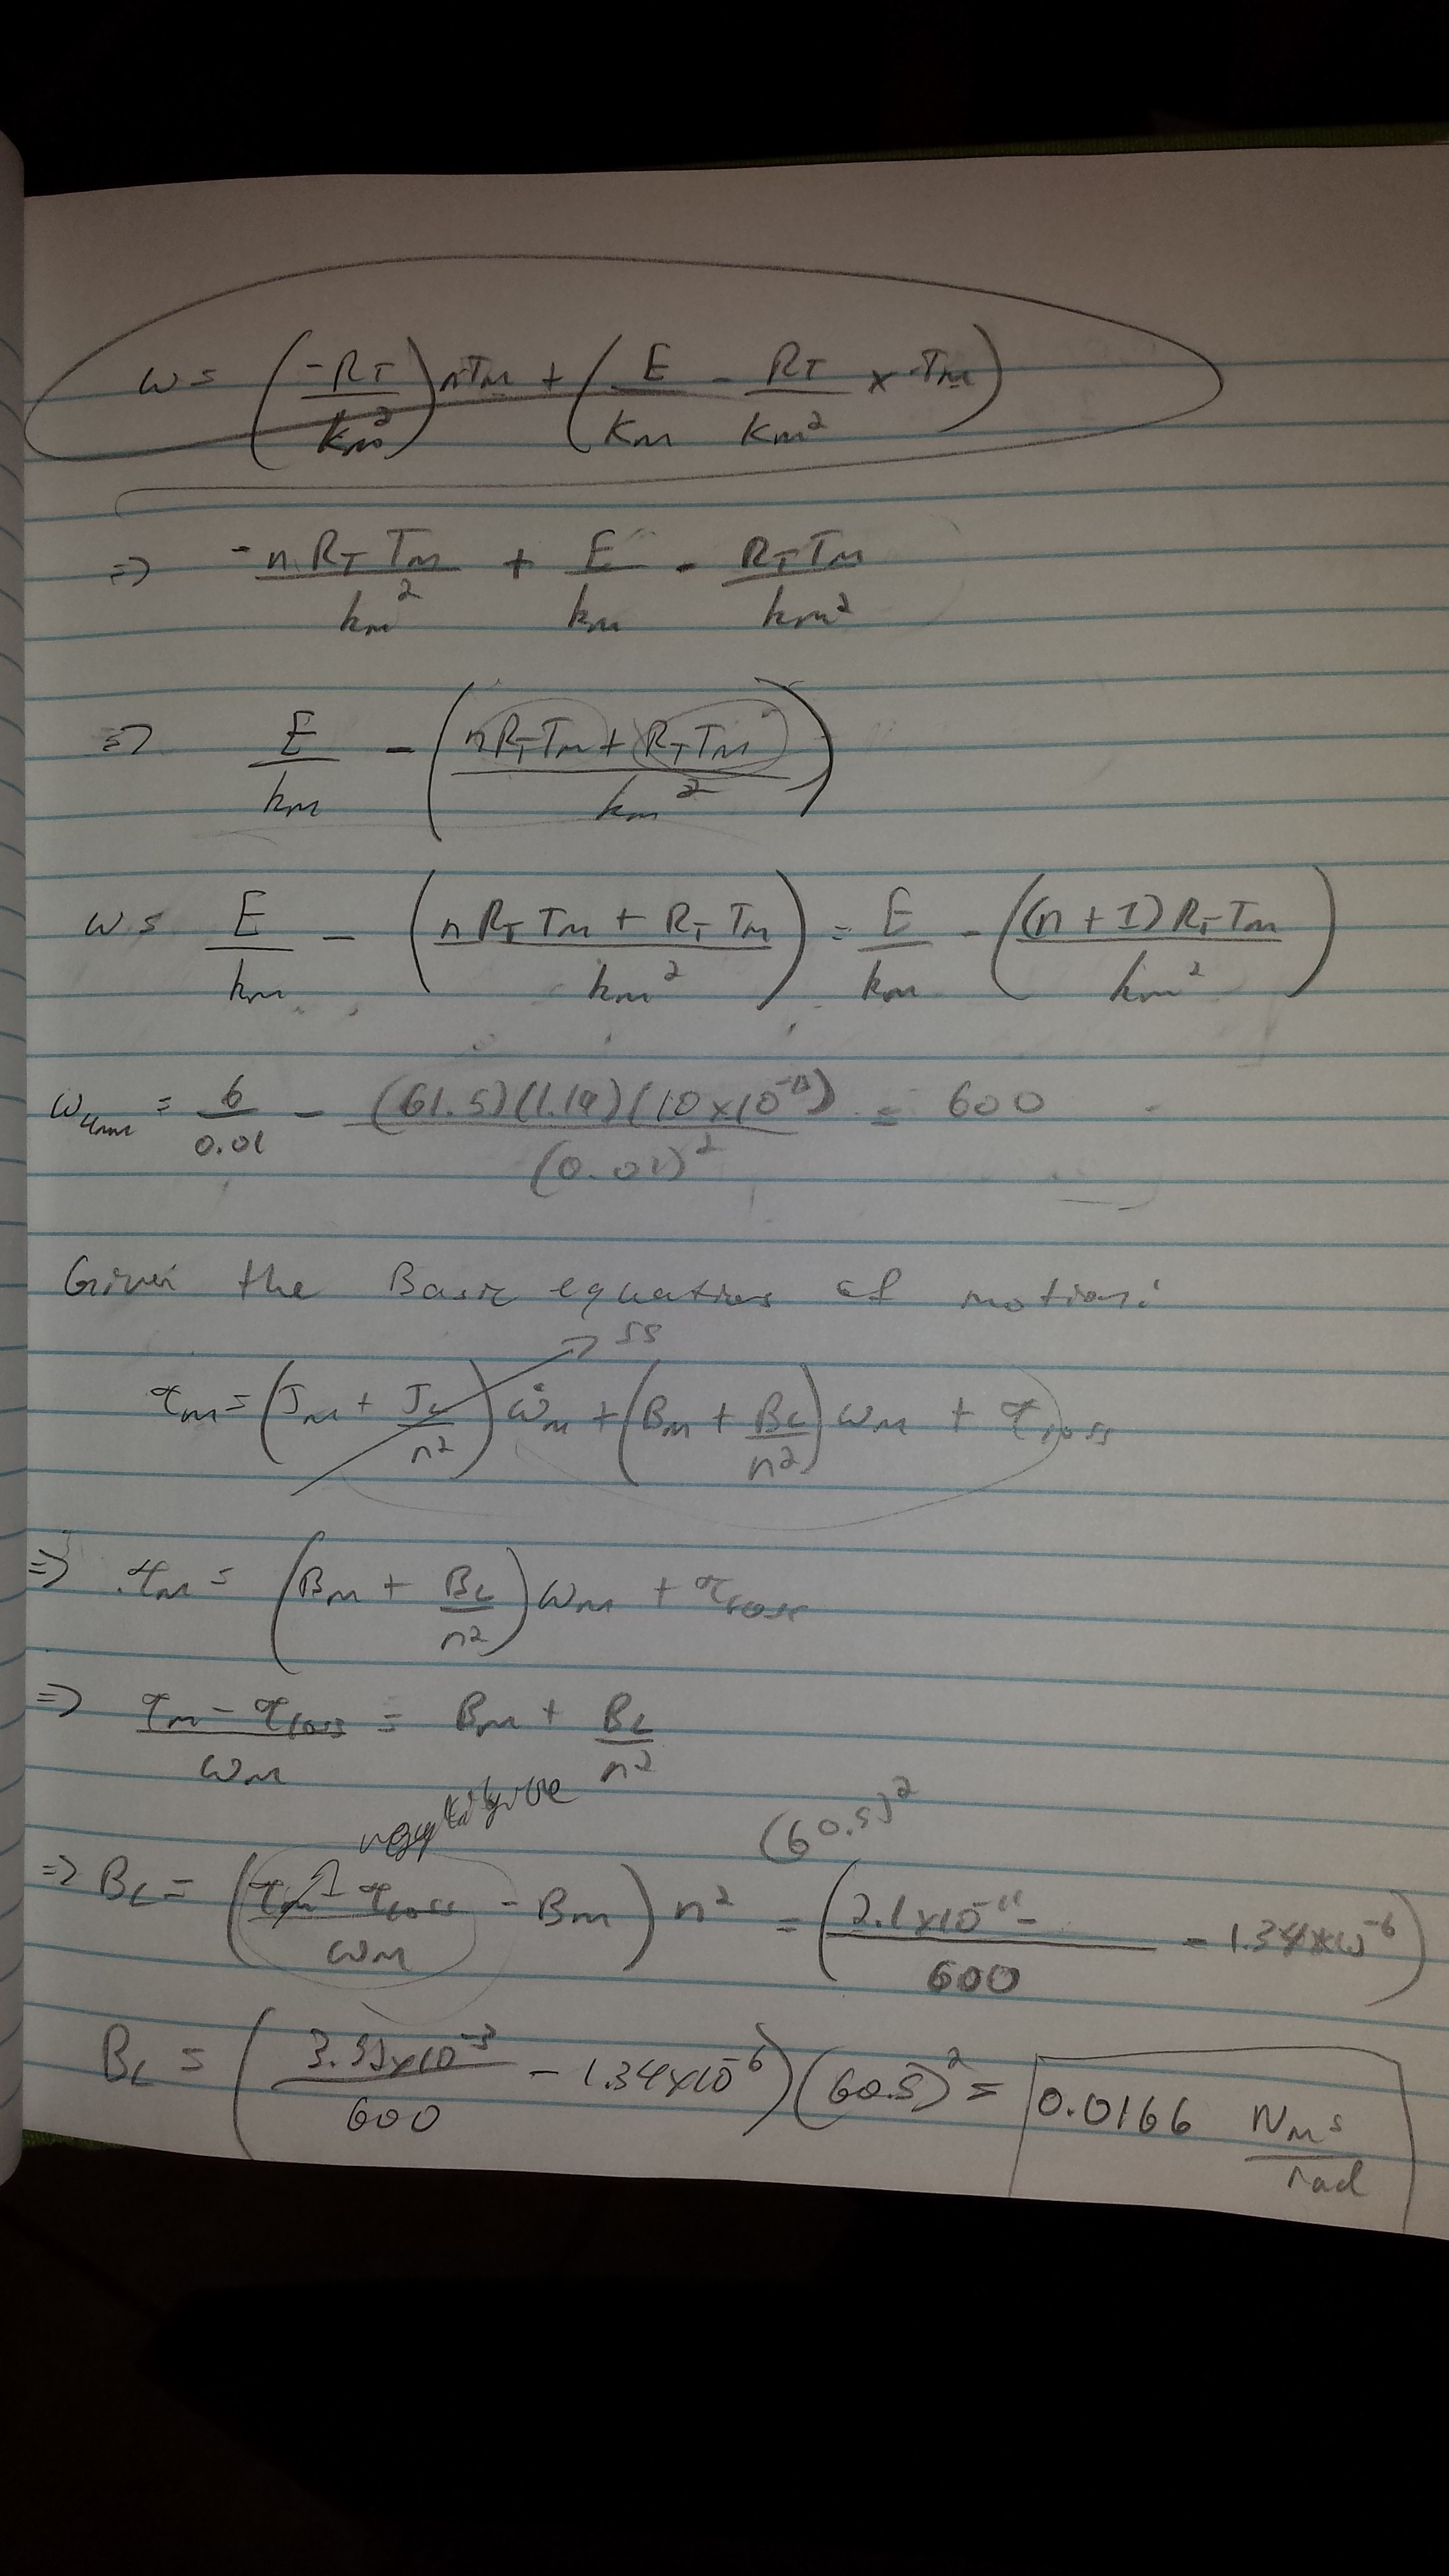 ω = (-R_T / k_m²) nT_m + (E / K_m - R_T / K_m² × T_m)
⇒ -n R_T T_m / k_m² + E / k_m - R_T T_m / k_m²
⇒ E / k_m - (n R_T T_m + R_T T_m / k_m²)
ω = E / k_m - (n R_T T_m + R_T T_m / k_m²) = E / k_m - ((n + 1) R_T T_m / k_m²)
= 6 / 0.01 - (61.5)(1.19)(10 × 10 ) / (0.01)² = 600
Given the Basic equations of motion:
→ ss
τ_m = (J_m + J_L / n²) ω̇_m + (B_m + B_L / n²) ω_m + τ_loss
⇒ τ_m = (B_m + B_L / n²) ω_m + τ_loss
⇒ τ_m - τ_loss / ω_m = B_m + B_L / n²
(60.5)²
⇒ B_L = (τ_m - τ_loss / ω_m - B_m) n² = (2.1×10 - / 600 - 1.34×10⁻⁶)
B_L = ( ×10⁻³ / 600 - 1.34×10⁻⁶)(60.5)² = 0.0166 Nms / rad